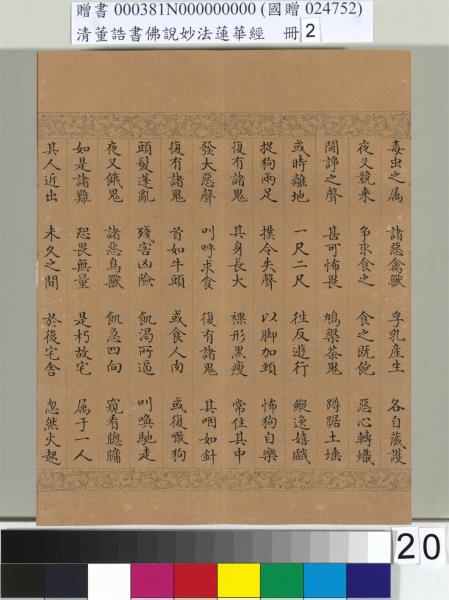 贈書 000381N000000000 (國贈 024752)
清董誥書佛說妙法蓮華經 冊 2
毒虫之属 諸惡禽獸 孚乳產生 各自藏護
夜叉競來 争取食之 食之既飽 惡心轉熾
鬪諍之聲 甚可怖畏 鳩槃荼鬼 蹲踞土埵
或時離地 一尺二尺 徃反遊行 縱逸嬉戲
捉狗兩足 撲令失聲 以脚加頸 怖狗自樂
復有諸鬼 其身長大 裸形黑瘦 常住其中
發大惡聲 叫呼求食 復有諸鬼 其咽如針
復有諸鬼 首如牛頭 或食人肉 或復噉狗
頭髮蓬亂 殘害凶險 飢渴所逼 叫喚馳走
夜叉餓鬼 諸惡鳥獸 飢急四向 窺看牕牖
如是諸難 恐畏無量 是朽故宅 属于一人
其人近出 未久之間 於後宅舍 忽然火起
20